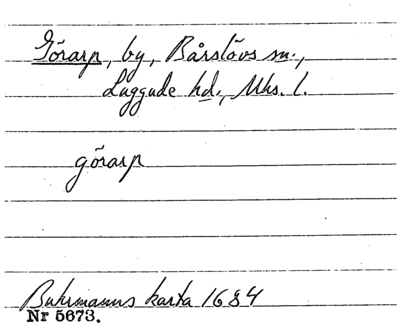 Görarp, by, Bårslövs sn.,
Luggude hd., Mhs. l.
görarp
Buhrmanns karta 1684
Nr 5673.